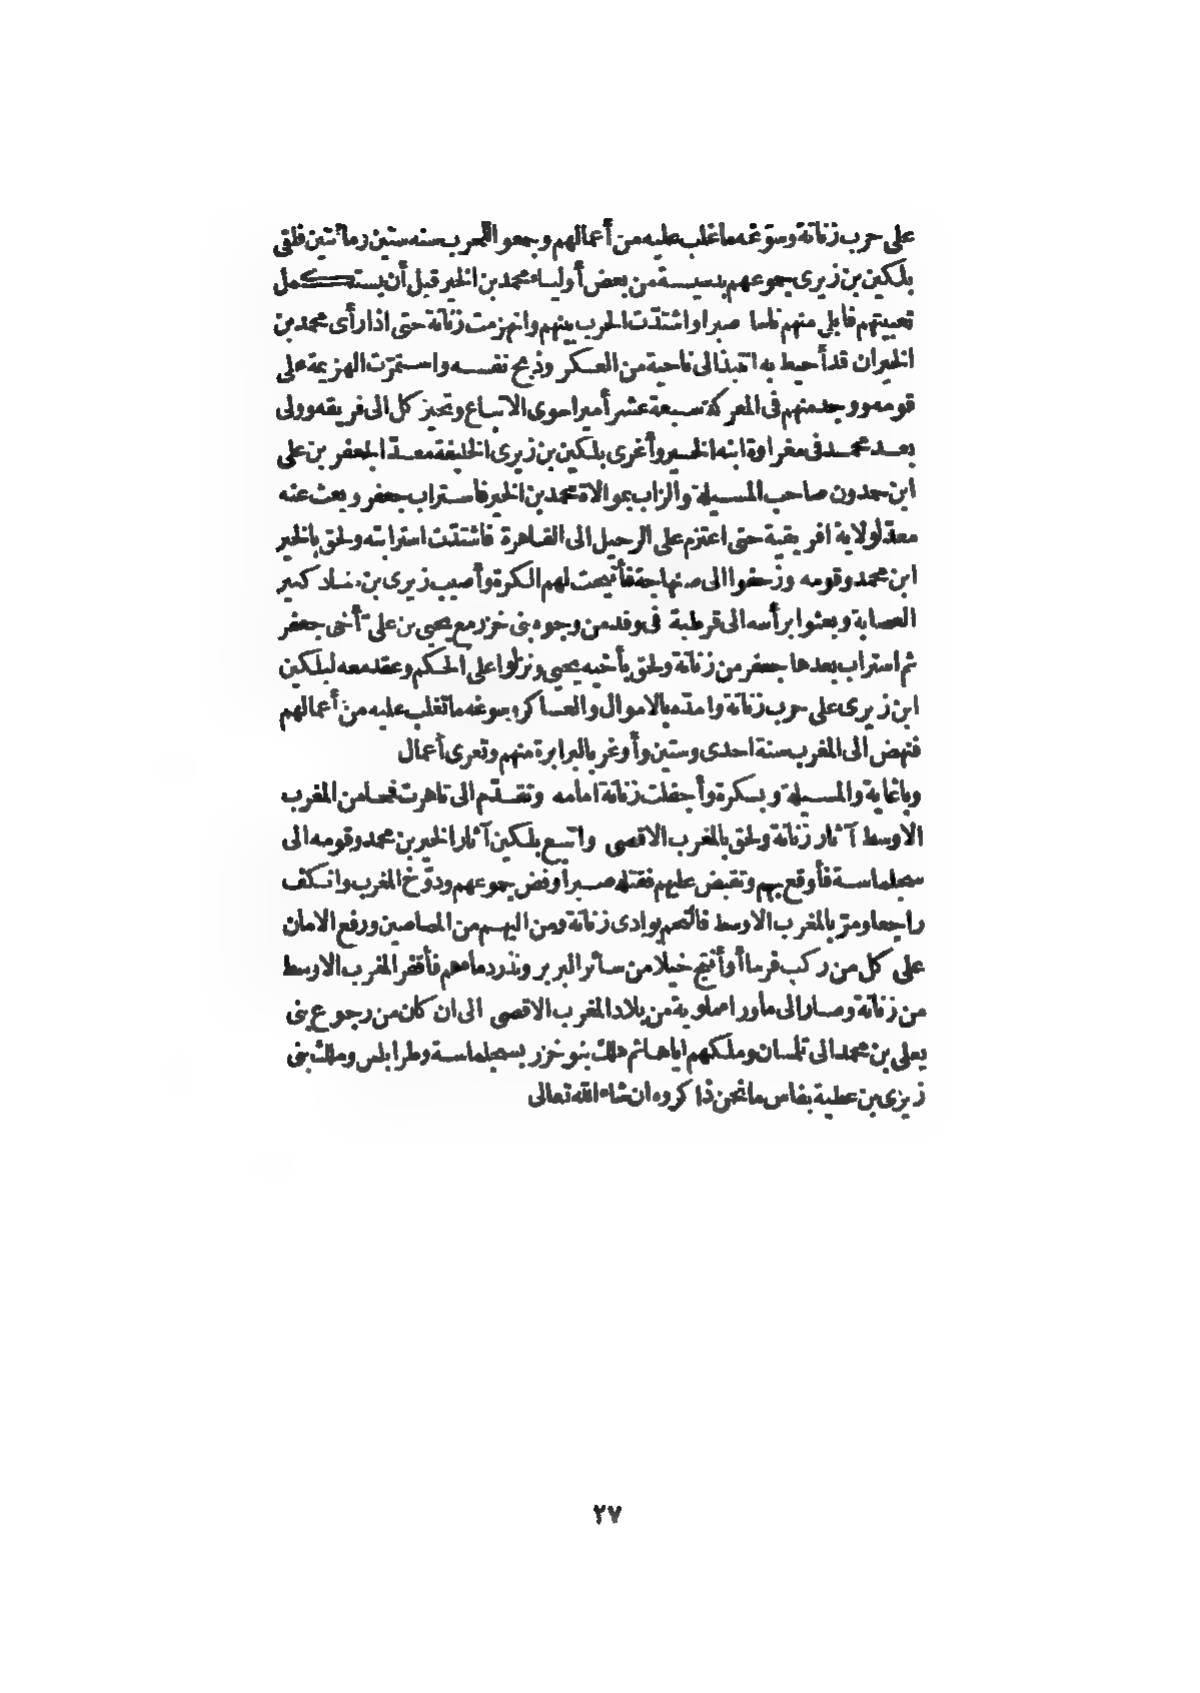 على حرب زناتة وسوّغه ما غلب عليه من أعمالهم وجمعوا للحرب سنه ستين وثلثمائة فلقى
بلكين بن زيرى جموعهم بدسيسة من بعض أولياء محمد بن الخير قبل أن يستكمل
تعبيتهم فابلى منهم ثابتا صبرا واشتدّت الحرب بينهم وانهزمت زناتة حتى اذا رأى محمد بن
الخير ان قد أحيط به انتبذ الى ناحية من العسكر وذبح نفسه واستمرّت الهزيمة على
قومه ووجد منهم فى المعركة سبعة عشر أميرا سوى الاتباع وتحيز كل الى فريقه وولى
بعد محمد فى مغراوة ابنه الخير وأغرى بلكين بن زيرى الخليفة معدّ الجعفر بن على
ابن حمدون صاحب المسيلة والزاب بموالاة محمد بن الخير فاستراب جعفر وبعث عنه
معدّ لولاية افريقية حتى اعتزم على الرحيل الى القاهرة فاشتدّت استرابته ولحق بالخير
ابن محمد وقومه وزحفوا الى صنهاجة فأتيحت لهم الكرة وأصيب زيرى بن مناد كبير
العصابة وبعثوا برأسه الى قرطبة فى وفد من وجوه بنى خزر مع يحيى بن على أخى جعفر
ثم استراب بعدها جعفر من زناتة ولحق بأخيه يحيى ونزلوا على الحكم وعقد معه لبلكين
ابن زيرى على حرب زناتة وامدّه بالاموال والعساكر وسوغه ما تغلب عليه من أعمالهم
فنهض الى المغرب سنة احدى وستين وأوغر بالبرابرة منهم وتعرى أعمال
وباغاية والمسيلة وبسكرة وأجفلت زناتة امامه وتقدّم الى تاهرت فمحا من المغرب
الاوسط آثار زناتة ولحق بالمغرب الاقصى واتبع بلكين آثار الخير بن محمد وقومه الى
سجلماسة فأوقع بهم وتقبض عليهم فقتله صبرا وفض جموعهم ودوّخ المغرب وانكف
راجعا ومرّ بالمغرب الاوسط فالتحم بوادى زناتة ومن اليهم من المصاصين ورفع الامان
على كل من ركب فرسا أو أنتج خيلا من سائر البربر ونذر دماءهم فأقفر المغرب الاوسط
من زناتة وصار الى ما وراء ملوية من بلاد المغرب الاقصى الى ان كان من رجوع بنى
يعلى بن محمد الى تلمسان وملكهم اياها ثم هلك بنو خزر بسجلماسة وطرابلس وملك بنى
زيرى بن عطية بفاس ما نحن ذاكروه ان شاء الله تعالى
٢٧